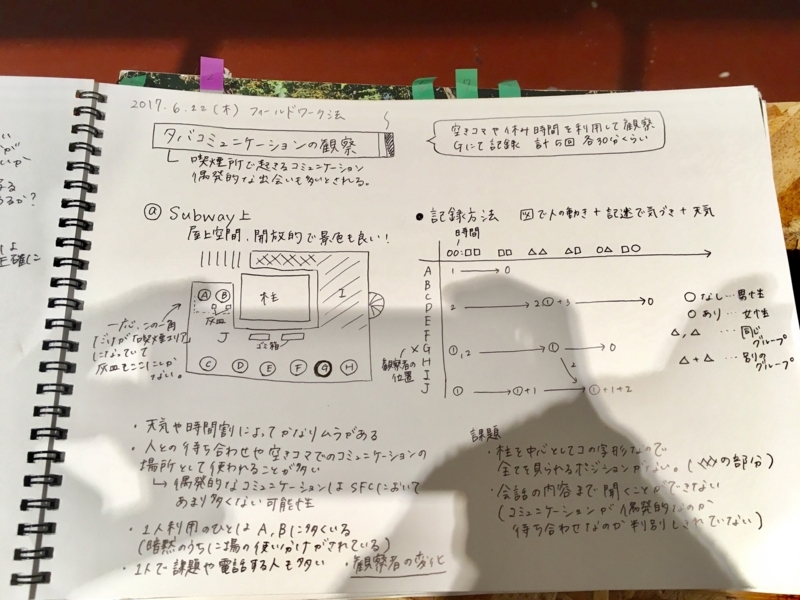 2017.6.22(木) フィールドワーク法
タバコミュニケーションの観察
└ 喫煙所で起きるコミュニケーション
偶発的な出会いも多いとされる。
空きコマや休み時間を利用して観察
Gにて記録 計5回 各30分くらい
ⓐ Subway上
屋上空間、開放的で景色も良い!
A B
灰皿
柱
I
J
ゴミ箱
C D E F G H
一応、この一角
だけが「喫煙エリア」
になっていて
灰皿もここにしか
ない。
● 記録方法 図で人の動き+記述で気づき+天気
時間
00:□□ □□ △△ △□ ○△ □○
A 1 → 0
B
C
D 2 → 2①+3 → 0
E
F
G ①,2 → ① → 0
H
I 2
J ① → ①+1 → ①+1+2
観察者の
位置
○なし…男性
○あり…女性
△,△ … 同じ
グループ
△+△ … 別の
グループ
・天気や時間割によってかなりムラがある
・人との待ち合わせや空きコマでのコミュニケーションの
場所として使われることが多い
└→ 偶発的なコミュニケーションはSFCにおいて
あまり多くない可能性
・1人利用のひとはA,Bに多くいる
(暗黙のうちに場の使い分けがされている)
・1人で課題や電話する人も多い ・観察者の変化
課題
・柱を中心としてコの字形なので
全てを見られるポジションがない。(の部分)
・会話の内容まで聞くことができない
(コミュニケーションが偶発的なのか
待ち合わせなのか判別しきれていない)